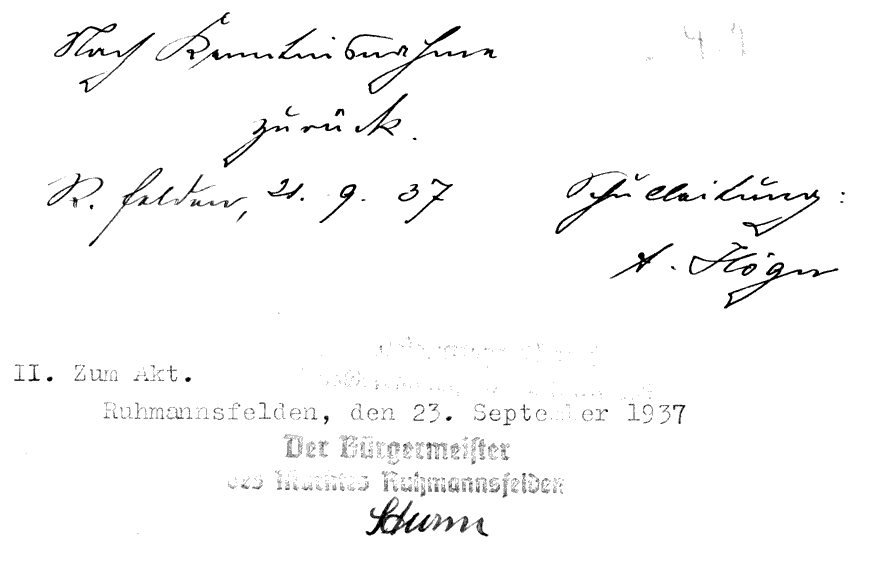 Nach Kenntnisnahme
zurück.
R. felden, 21. 9. 37
Schulleitung:
A. Högn
II. Zum Akt.
Ruhmannsfelden, den 23. September 1937
Der Bürgermeister
des Marktes Ruhmannsfelden
Sturm